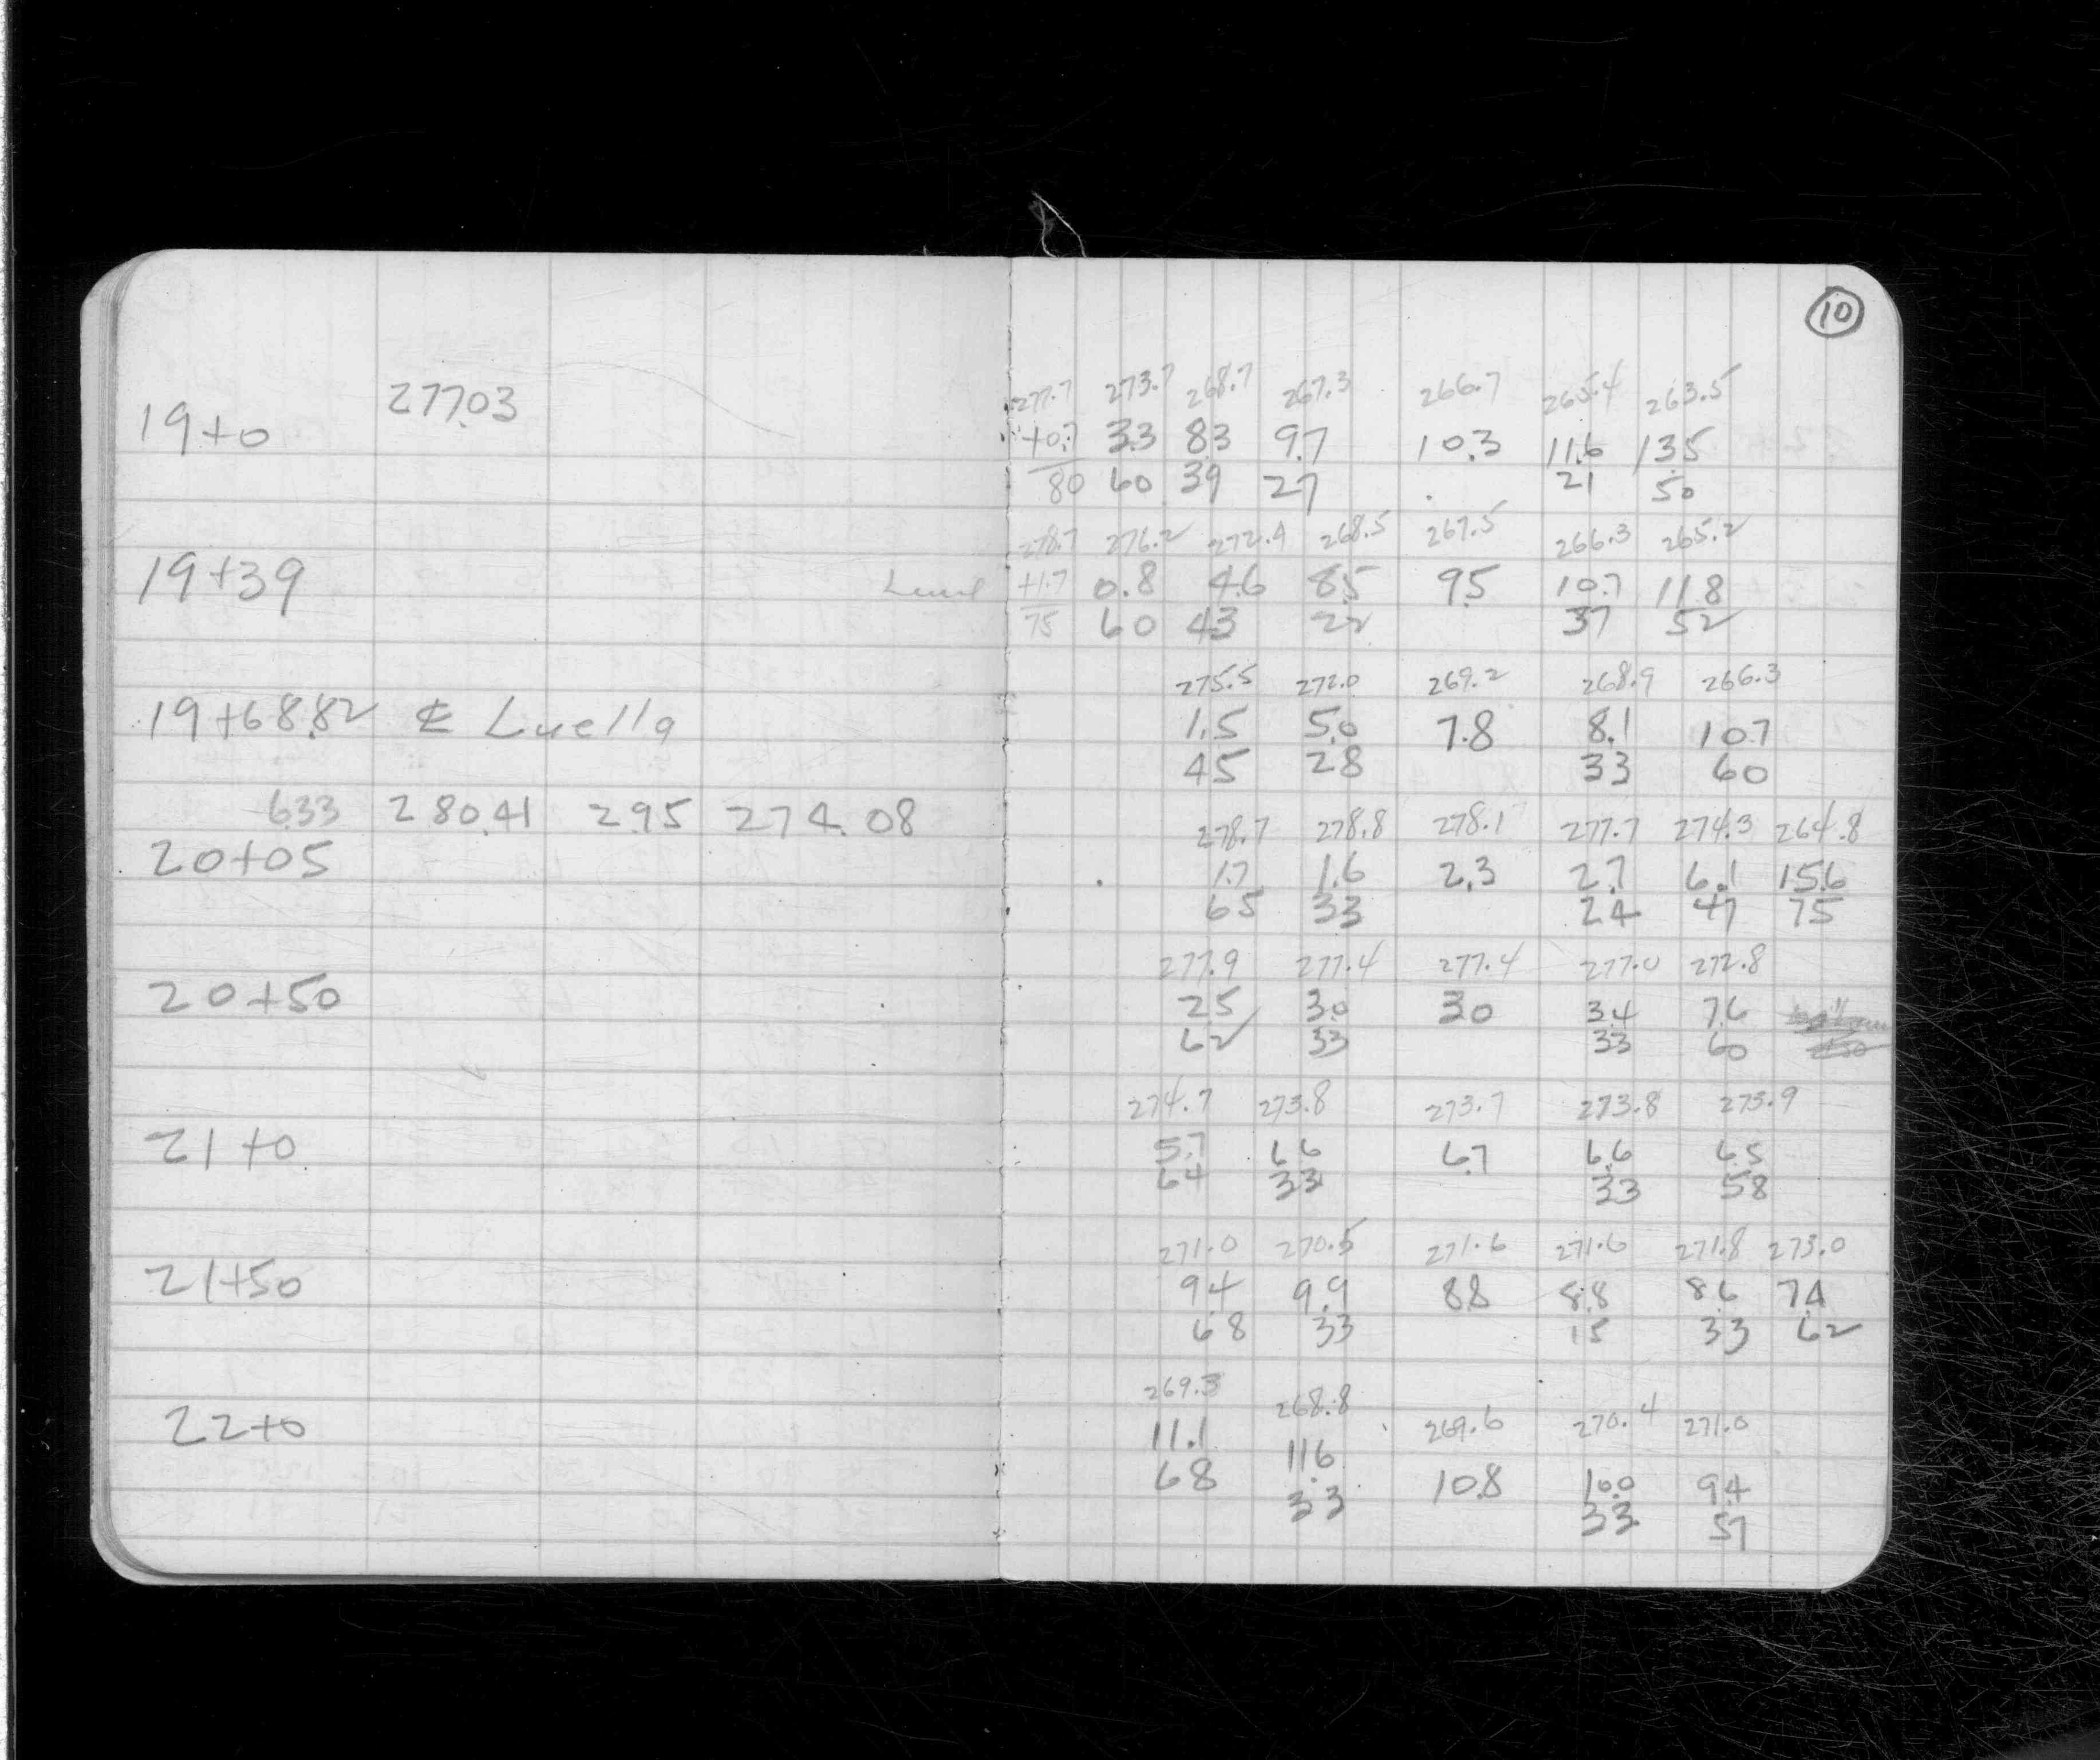 10
277.03
277.7 273.7 268.7 267.3 266.7 265.4 263.5
19+0 +0.7 3.3 8.3 9.7 10.3 11.6 13.5
80 60 39 27 21 50
278.7 276.2 272.4 268.5 267.5 266.3 265.2
19+39 +1.7 0.8 4.6 8.5 9.5 10.7 11.8
75 60 43 22 37 52
275.5 272.0 269.2 268.9 266.3
19+68.82 ℄ Luella 1.5 5.0 7.8 8.1 10.7
45 28 33 60
6.33 280.41 2.95 274.08 278.7 278.8 278.1 277.7 274.3 264.8
20+05 1.7 1.6 2.3 2.7 6.1 15.6
65 33 24 47 75
277.9 277.4 277.4 277.0 272.8
20+50 2.5 3.0 3.0 3.4 7.6
62 33 33 60
274.7 273.8 273.7 273.8 273.9
21+0 5.7 6.6 6.7 6.6 6.5
64 33 33 58
271.0 270.5 271.6 271.6 271.8 273.0
21+50 9.4 9.9 8.8 8.8 8.6 7.4
68 33 15 33 62
269.3 268.8 269.6 270.4 271.0
22+0 11.1 11.6 10.8 10.0 9.4
68 33 33 57